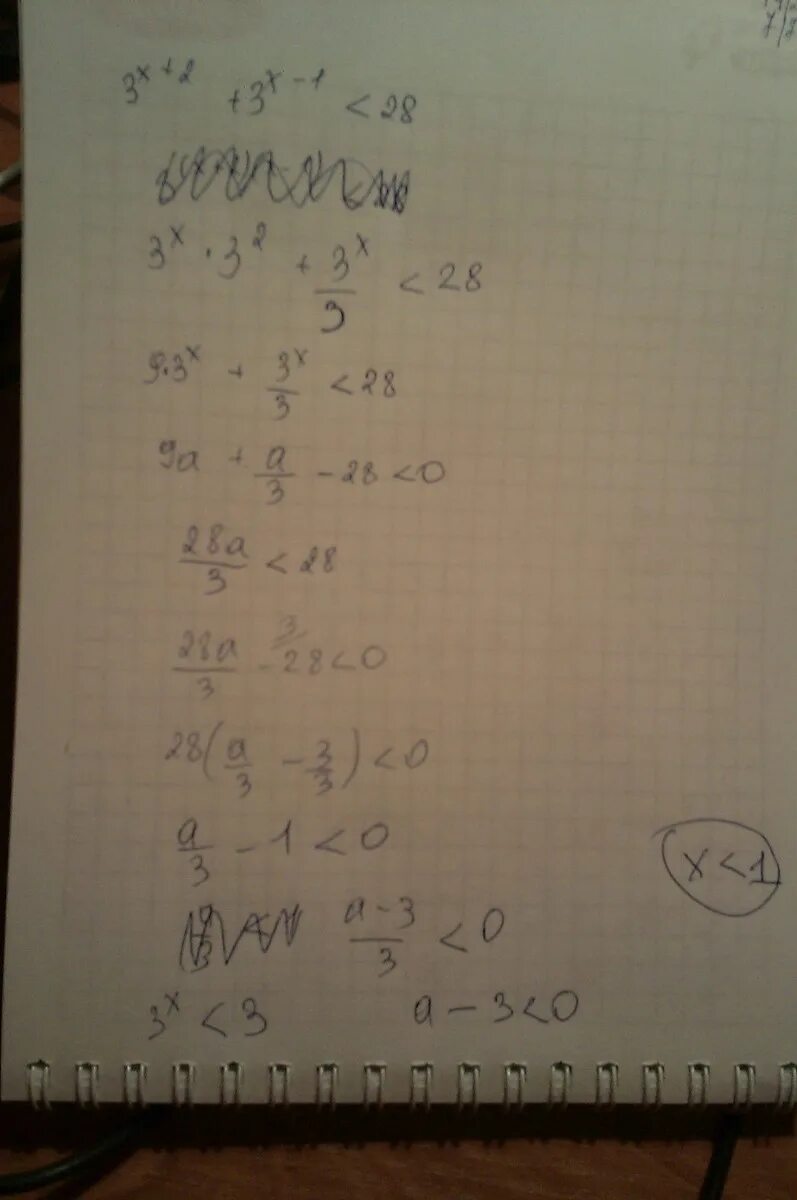 3^{x+2} + 3^{x-1} < 28
3^x · 3^2 + \frac{3^x}{3} < 28
9·3^x + \frac{3^x}{3} < 28
9a + \frac{a}{3} - 28 < 0
\frac{28a}{3} < 28
\frac{28a}{3} - 28^{3/} < 0
28(\frac{a}{3} - \frac{3}{3}) < 0
\frac{a}{3} - 1 < 0
x < 1
\frac{a-3}{3} < 0
3^x < 3 a - 3 < 0